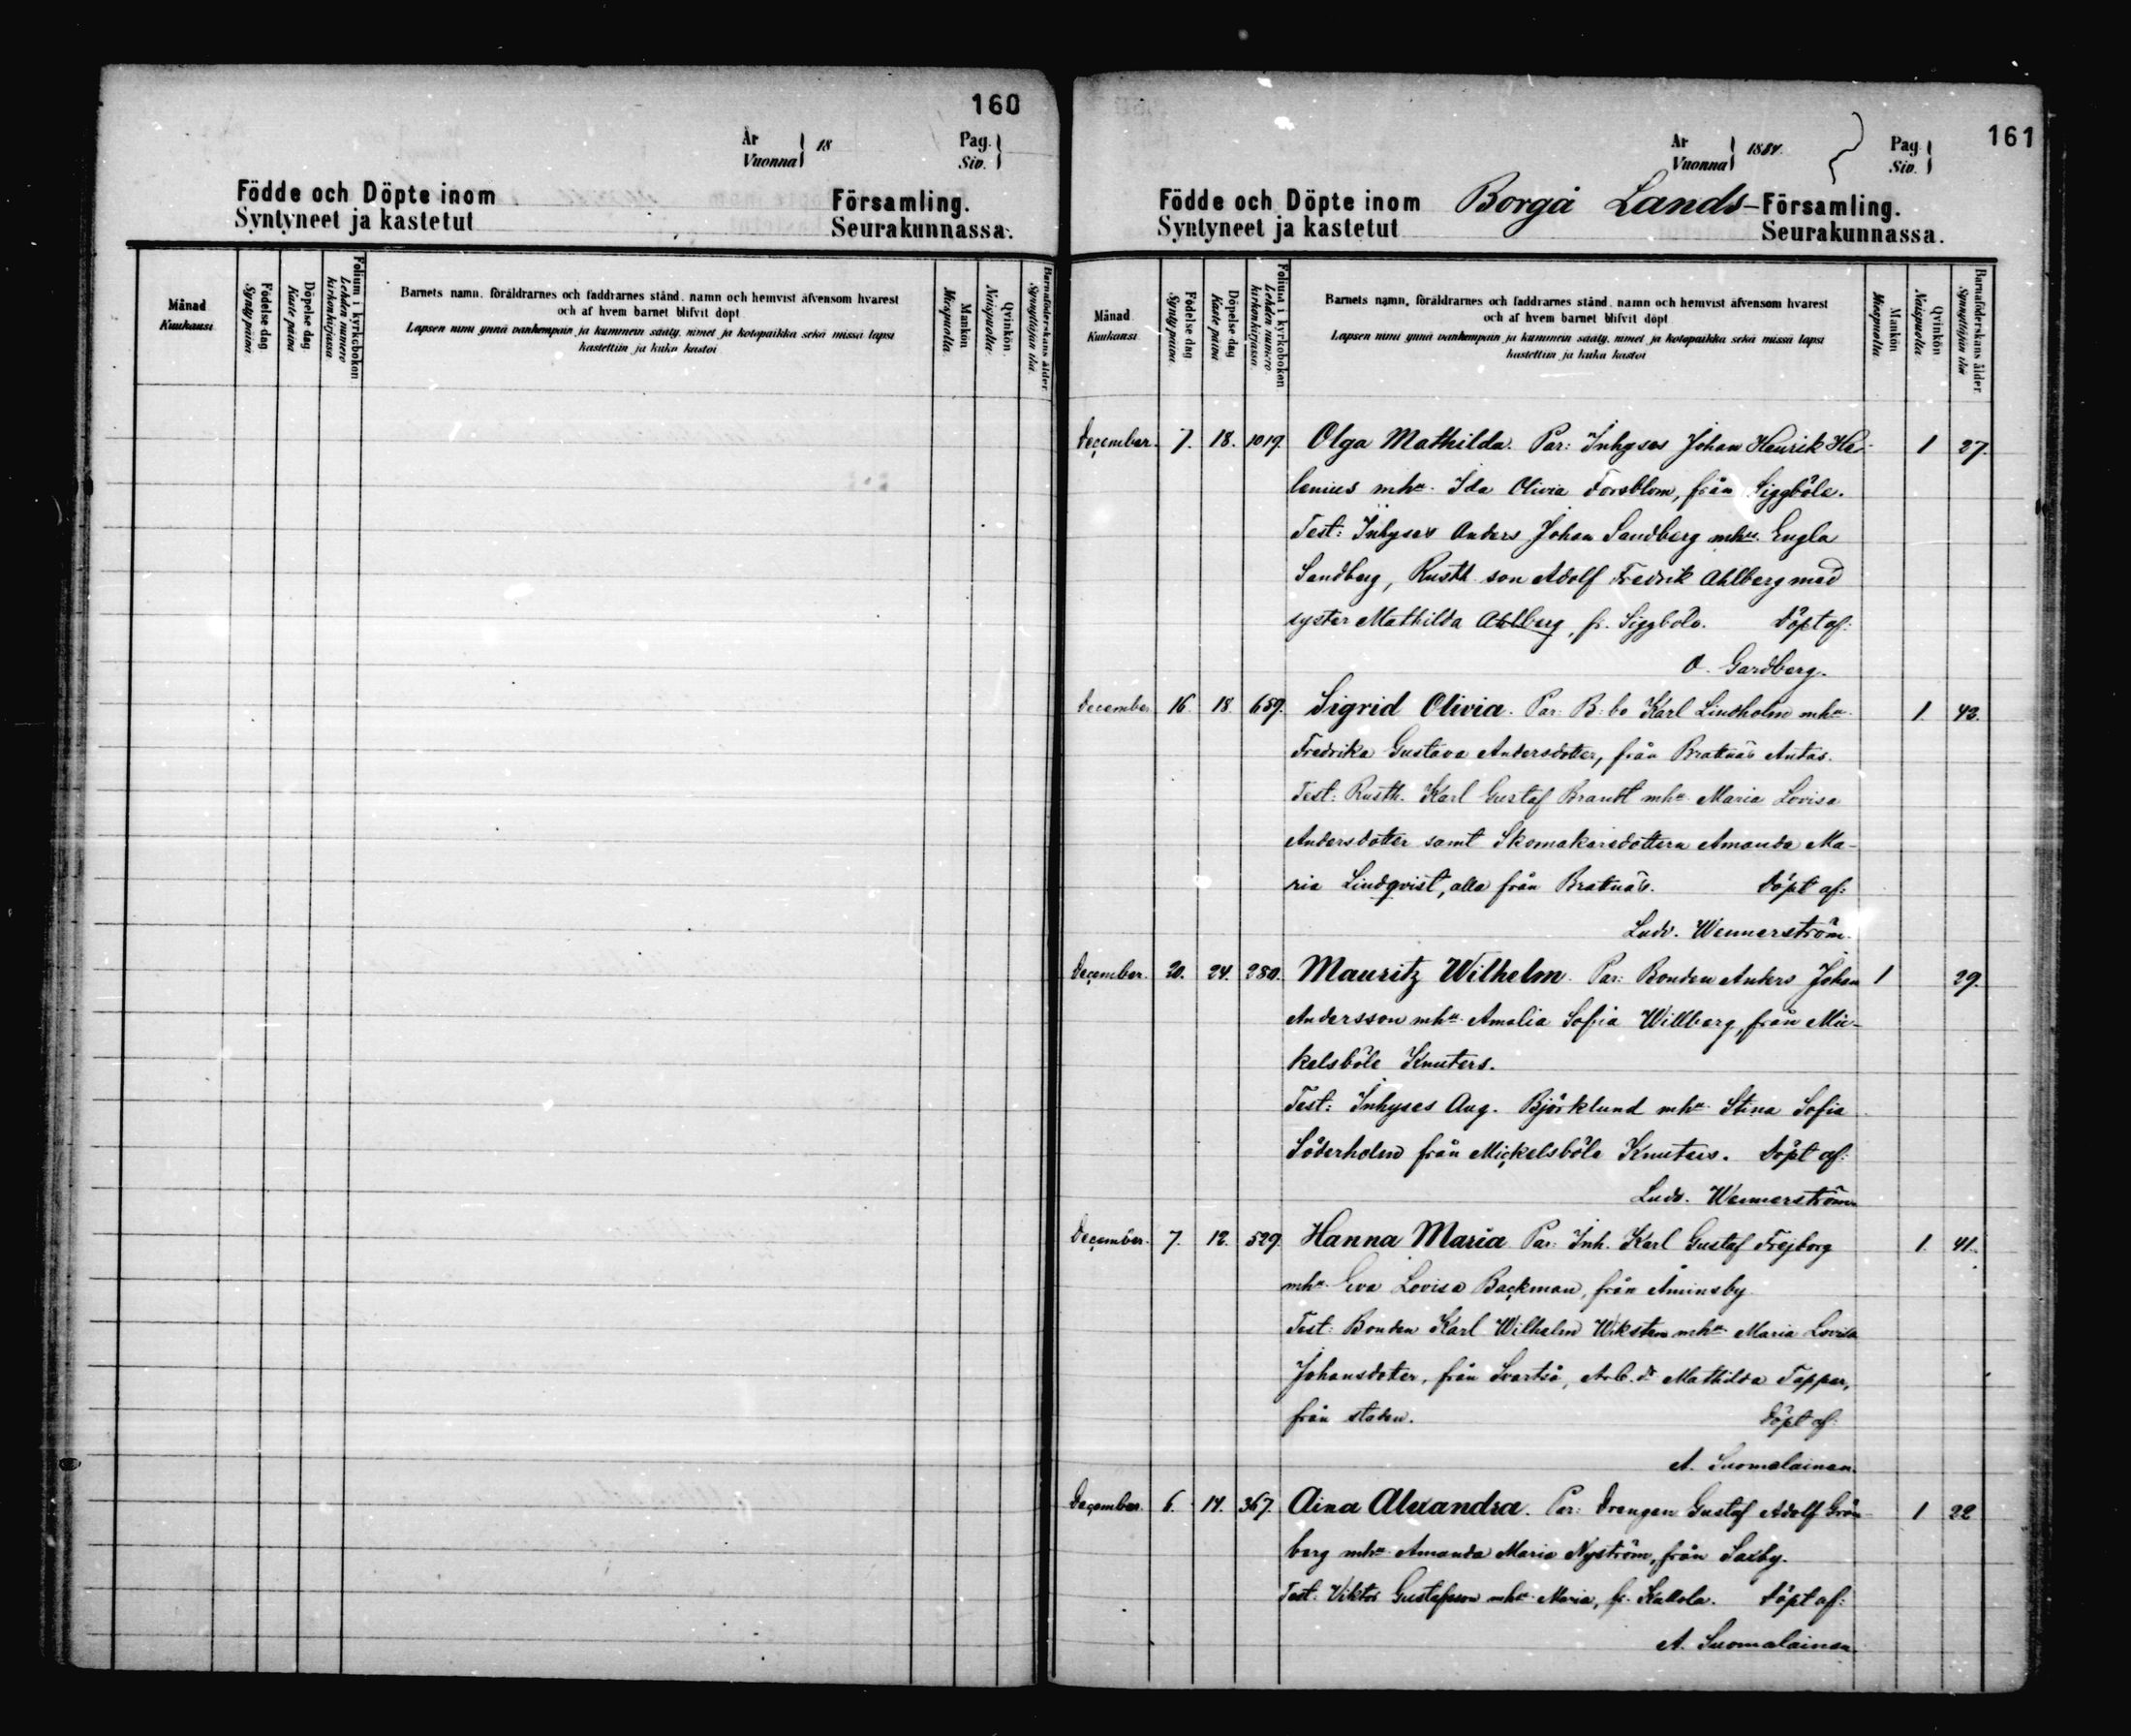 160
År
Vuonna } 18
Pag.
Siv. }
Födde och Döpte inom Församling.
Syntyneet ja kastetut Seurakunnassa.
Månad
Kuukausi
Födelse dag
Synty päivä
Döpelse dag
Kaste päivä
Folium i kyrkoboken
Lehden numero kirkonkirjassa
Barnets namn, föräldrarnes och faddrarnes stånd, namn och hemvist äfvensom hvarest
och af hvem barnet blifvit döpt
Lapsen nimi ynnä vanhempain ja kummein sääty, nimet ja kotopaikka sekä missä lapsi
kastettiin ja kuka kastoi
Mankön
Miespuolta
Qvinkön
Naispuolta
Barnaföderskans ålder
Synnyttäjän ikä
161
År
Vuonna } 1884.
Pag
Siv. }
Födde och Döpte inom Borgå Lands- Församling.
Syntyneet ja kastetut Seurakunnassa.
Månad
Kuukausi
Födelse dag
Synty päivä
Döpelse dag
Kaste päivä
Folium i kyrkoboken
Lehden numero kirkonkirjassa
Barnets namn, föräldrarnes och faddrarnes stånd, namn och hemvist äfvensom hvarest
och af hvem barnet blifvit döpt
Lapsen nimi ynnä vanhempain ja kummein sääty, nimet ja kotopaikka sekä missä lapsi
kastettiin ja kuka kastoi
Mankön
Miespuolta
Qvinkön
Naispuolta
Barnaföderskans ålder
Synnyttäjän ikä
December. 7. 18. 1019. Olga Mathilda. Par: Inhyses Johan Henrik He- 1 27.
lenius mhu. Ida Olivia Forsblom, från Siggböle.
Test: Inhyses Anders Johan Sandberg mhu. Engla
Sandberg, Rusth. son Adolf Fredrik Ahlberg med
syster Mathilda Ahlberg, fr. Siggböle. Döpt af:
O. Gardberg.
December 16. 18. 659. Sigrid Olivia. Par: B: bo Karl Lindholm mhu. 1. 43.
Fredrika Gustava Andersdotter, från Bratnäs Antas.
Test: Rusth. Karl Gustaf Brandt mhu. Maria Lovisa
Andersdotter samt Skomakaredottern Amanda Ma-
ria Lindqvist, alla från Bratnäs. Döpt af:
Ludv. Wennerström.
December. 20. 24. 280. Mauritz Wilhelm. Par: Bonden Anders Johan 1 29.
Andersson mhu. Amalia Sofia Willberg, från Mic-
kelsböle Knuters.
Test: Inhyses Aug. Björklund mhu. Stina Sofia
Söderholm från Mickelsböle Knuters. Döpt af:
Ludv. Wennerström
December. 7. 12. 529. Hanna Maria Par: Inh. Karl Gustaf Frejborg 1. 41.
mhu. Eva Lovisa Backman, från Åminsby
Test: Bonden Karl Wilhelm Wiksten mhu. Maria Lovisa
Johansdoter, från Svartså, Arb. dr Mathilda Tapper,
från staden. Döpt af:
A. Suomalainen.
December. 6. 14. 367. Aina Alexandra. Par: Drengen Gustaf Adolf Grön- 1 22
berg mhu. Amanda Maria Nyström, från Saxby.
Test. Viktor Gustafsson mhu. Maria, fr. Kallola. Döpt af:
A. Suomalainen